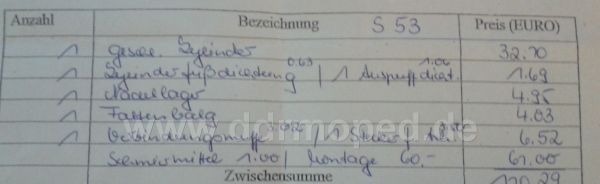 Anzahl Bezeichnung S 53 Preis (EURO)
1 gesch. Zylinder 32.70
1 Zylinderfußdichtung 0.63 / 1 Auspuffdicht. 1.06 1.69
1 Nadellager 4.95
1 Faltenbalg 4.03
1 Verbindungsmuffe 6.52
Schmiermittel 1.00 / Montage 60,- 61.00
Zwischensumme 110.29
www.ddrmoped.de